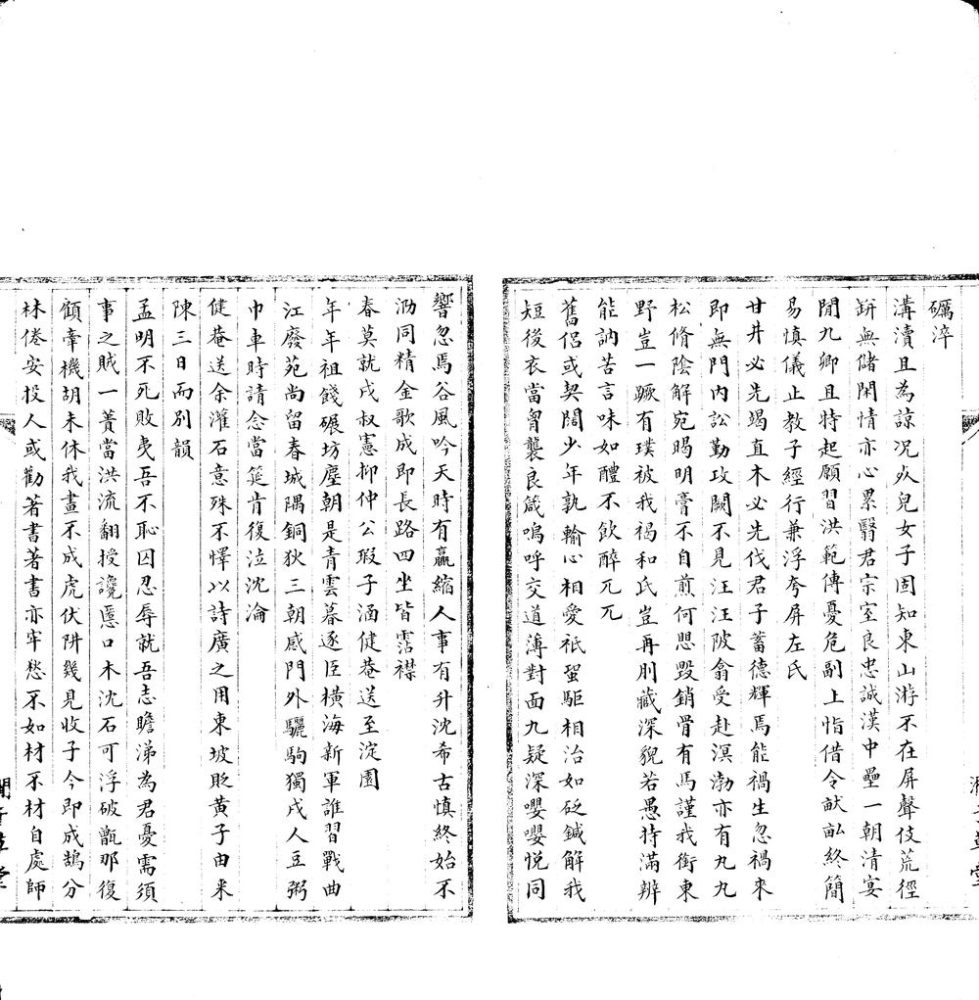 礪淬
溝瀆且為諒况乆兒女子固知東山游不在屏聲伎荒徑
缾無儲閑情亦心累賢君宗室良忠誠漢中壘一朝清宴
閒九卿且特起願習洪範傳憂危副上恉借令畎畝終簡
易慎儀止教子經行兼浮夸屏左氏
甘井必先竭直木必先伐君子蓄德輝焉能禍生忽禍來
即無門內訟勤攻闕不見汪汪陂翕受赴溟渤亦有丸丸
松脩陰解宛暍明膏不自煎何思毀銷骨有馬謹我銜東
野豈一蹶有璞被我褐和氏豈再刖藏深貌若愚持滿辨
能訥苦言味如醴不飲醉兀兀
舊侶或契闊少年孰輸心相愛祇蛩駏相治如砭鍼解我
短後衣當胷襲良箴嗚呼交道薄對面九疑深嚶嚶悦同
響忽焉谷風吟天時有贏縮人事有升沈希古慎終始不
泐同精金歌成即長路四坐皆霑襟
春莫就戍叔憲抑仲公瑕子涵健菴送至淀園
年年祖餞碾坊塵朝是青雲暮逐臣橫海新軍誰習戰曲
江廢苑尚留春城隅銅狄三朝感門外驪駒獨戍人豆粥
巾車時請念當筵肯復泣沈淪
健菴送余灌石意殊不懌以詩廣之用東坡貶黃子由来
陳三日而别韻
孟明不死敗曵吾不恥囚忍辱就吾志瞻涕為君憂需須
事之賊一蕢當洪流翻授讒慝口木沈石可浮破甑那復
顧幸機胡未休我畫不成虎伏阱幾見收子今即成鵠分
林倦安投人或勸著書著書亦牢愁不如材不材自處師